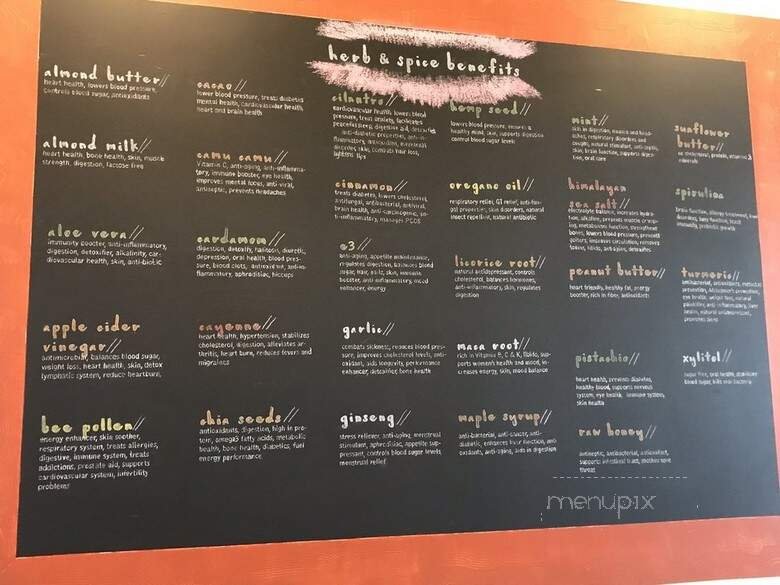 herb & spice benefits
almond butter//
heart health, lowers blood pressure,
controls blood sugar, antioxidants
almond milk//
heart health, bone health, skin, muscle
strength, digestion, lactose free
aloe vera//
immunity booster, anti-inflammatory,
digestion, detoxifier, alkalinity, car-
diovascular health, skin, anti-biotic
apple cider
vinegar//
antimicrobial, balances blood sugar,
weight loss, heart health, skin, detox
lymphatic system, reduce heartburn,
bee pollen//
energy enhancer, skin soother,
respiratory system, treats allergies,
digestive, immune system, treats
addictions, prostate aid, supports
cardiovascular system, infertility
problems
cacao//
lower blood pressure, treats diabetes
mental health, cardiovascular health,
heart and brain health
camu camu//
Vitamin C, anti-aging, anti-inflamma-
tory, immune booster, eye health,
improves mental focus, anti-viral,
antiseptic, prevents headaches
cardamom//
digestion, detoxify, halitosis, diuretic,
depression, oral health, blood pres-
sure, blood clots, antioxidant, anti-in-
flammatory, aphrodisiac, hiccups
cayenne//
heart health, hypertension, stabilizes
cholesterol, digestion, alleviates ar-
thritis, heart burn, reduces fevers and
migraines
chia seeds//
antioxidants, digestion, high in pro-
tein, omega3 fatty acids, metabolic
health, bone health, diabetes, fuel
energy performance
cilantro//
cardiovascular health, lowers blood
pressure, treat anxiety, facilitates
peacefulness, digestive aid, detoxifies
anti-diabetic properties, anti-in-
flammatory, antioxidant, menstrual
disorders, skin, combats hair loss,
lightens lips
cinnamon//
treats diabetes, lowers cholesterol,
antifungal, antibacterial, antiviral,
brain health, anti-carcinogenic, an-
ti-inflammatory, manages PCOS
e3//
anti-aging, appetite maintenance,
regulates digestion, balances blood
sugar, hair, nails, skin, immune
booster, anti-inflammatory, mood
enhancer, energy
garlic//
combats sickness, reduces blood pres-
sure, improves cholesterol levels, anti-
oxidant, aids longevity, performance
enhancer, detoxifier, bone health
ginseng//
stress reliever, anti-aging, menstrual
stimulant, aphrodisiac, appetite sup-
pressant, controls blood sugar levels
menstrual relief
hemp seed//
lowers blood pressure, ensures a
healthy mind, skin, supports digestion
control blood sugar levels
oregano oil//
respiratory relief, GI relief, anti-fun-
gal properties, skin disorders, natural
insect repellent, natural antibiotic
licorice root//
natural antidepressant, controls
cholesterol, balances hormones,
anti-inflammatory, skin, regulates
digestion
maca root//
rich in Vitamin B, C & K, libido, sup-
ports women's health and mood, in-
creases energy, skin, mood balance
maple syrup//
anti-bacterial, anti-cancer, anti-
diabetic, enhances liver function, anti
oxidants, anti-aging, aids in digestion
mint//
aids in digestion, nausea and head-
aches, respiratory disorders and
coughs, natural stimulant, anti-septic,
skin, brain function, supports diges-
tion, oral care
himalayan
sea salt//
electrolyte balance, increases hydra-
tion, alkaline, prevents muscle cramp-
ing, metabolism function, strengthens
bones, lowers blood pressure, prevent
goiters, improves circulation, removes
toxins, libido, anti-aging, detoxifies
peanut butter//
heart friendly, healthy fat, energy
booster, rich in fiber, antioxidants
pistachio//
heart health, prevents diabetes,
healthy blood, supports nervous
system, eye health, immune system,
skin health
raw honey//
antiseptic, antibacterial, antioxidant,
supports intestinal tract, soothes sore
throat
sunflower
butter//
no cholesterol, protein, vitamins &
minerals
spirulina
brain function, allergy treatment, liver
disorders, bone function, boost
immunity, probiotic growth
turmeric//
antibacterial, antioxidants, metastasis
prevention, Alzheimer's prevention,
eye health, weight loss, natural
painkiller, anti-inflammatory, liver
health, natural antidepressant,
promotes skin
xylitol//
sugar free, oral health, stabilizes
blood sugar, kills oral bacteria
menupix